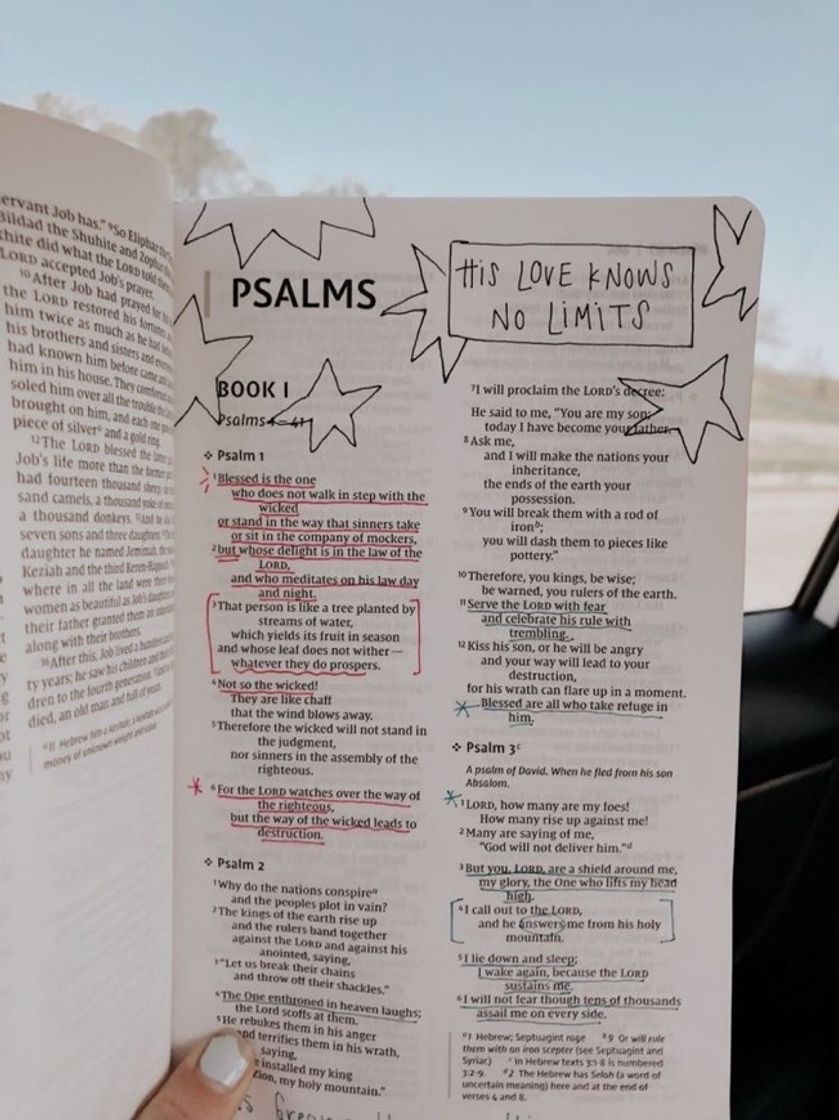 ervant Job has." ⁹So Eliphaz the
Bildad the Shuhite and Zophar
thite did what the LORD told them
LORD accepted Job's prayer.
¹⁰After Job had prayed for
the LORD restored his fortunes
him twice as much as he had
his brothers and sisters and everyone
had known him before came and
him in his house. They comforted
soled him over all the trouble the
brought on him, and each one
piece of silver and a gold ring.
¹²The LORD blessed the latter
Job's life more than the former
had fourteen thousand sheep,
sand camels, a thousand yoke of
a thousand donkeys. ¹³And he
seven sons and three daughters.
daughter he named Jemimah, the
Keziah and the third Keren-Happuch.
where in all the land were there
women as beautiful as Job's daughters,
their father granted them an
along with their brothers.
¹⁶After this, Job lived a hundred
ty years; he saw his children and
dren to the fourth generation.
died, an old man and full of years.
ᵃ11 Hebrew him a kesitah; a kesitah was a
money of unknown weight and value.
PSALMS
BOOK I
Psalms 1–41
❖ Psalm 1
¹Blessed is the one
who does not walk in step with the
wicked
or stand in the way that sinners take
or sit in the company of mockers,
²but whose delight is in the law of the
LORD,
and who meditates on his law day
and night.
³That person is like a tree planted by
streams of water,
which yields its fruit in season
and whose leaf does not wither—
whatever they do prospers.
⁴Not so the wicked!
They are like chaff
that the wind blows away.
⁵Therefore the wicked will not stand in
the judgment,
nor sinners in the assembly of the
righteous.
⁶For the LORD watches over the way of
the righteous,
but the way of the wicked leads to
destruction.
❖ Psalm 2
¹Why do the nations conspireᵃ
and the peoples plot in vain?
²The kings of the earth rise up
and the rulers band together
against the LORD and against his
anointed, saying,
³"Let us break their chains
and throw off their shackles."
⁴The One enthroned in heaven laughs;
the Lord scoffs at them.
⁵He rebukes them in his anger
and terrifies them in his wrath,
saying,
installed my king
Zion, my holy mountain."
HIS LOVE KNOWS
NO LIMITS
⁷I will proclaim the LORD's decree:
He said to me, "You are my son;
today I have become your father.
⁸Ask me,
and I will make the nations your
inheritance,
the ends of the earth your
possession.
⁹You will break them with a rod of
ironᵇ;
you will dash them to pieces like
pottery."
¹⁰Therefore, you kings, be wise;
be warned, you rulers of the earth.
¹¹Serve the LORD with fear
and celebrate his rule with
trembling.
¹²Kiss his son, or he will be angry
and your way will lead to your
destruction,
for his wrath can flare up in a moment.
Blessed are all who take refuge in
him.
❖ Psalm 3ᶜ
A psalm of David. When he fled from his son
Absalom.
¹LORD, how many are my foes!
How many rise up against me!
²Many are saying of me,
"God will not deliver him."ᵈ
³But you, LORD, are a shield around me,
my glory, the One who lifts my head
high.
⁴I call out to the LORD,
and he answers me from his holy
mountain.
⁵I lie down and sleep;
I wake again, because the LORD
sustains me.
⁶I will not fear though tens of thousands
assail me on every side.
ᵃ1 Hebrew; Septuagint rage ᵇ9 Or will rule
them with an iron scepter (see Septuagint and
Syriac) ᶜIn Hebrew texts 3:1-8 is numbered
3:2-9. ᵈ2 The Hebrew has Selah (a word of
uncertain meaning) here and at the end of
verses 4 and 8.